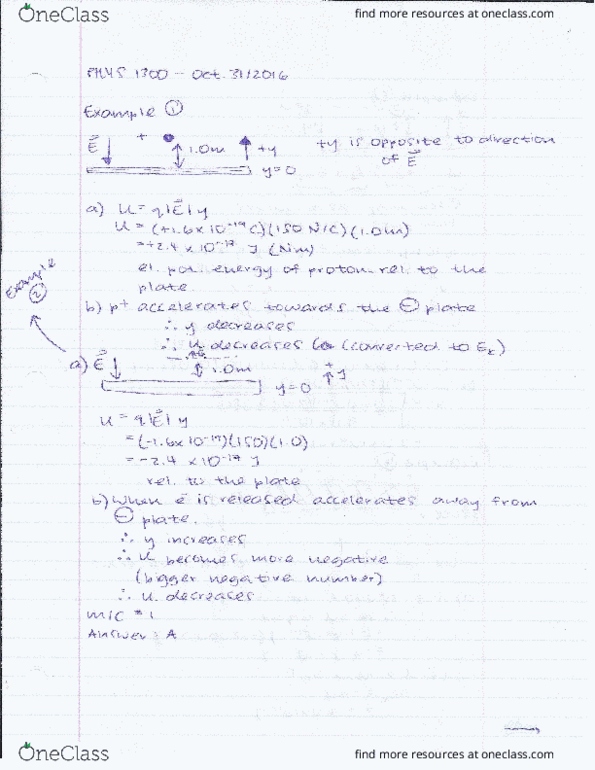 OneClass
find more resources at oneclass.com
PHYS 1300 - Oct. 31/2016
Example ①
E⃗ + 1.0m +y
y=0
+y is opposite to direction
of E⃗
a) U = q|E⃗|y
U = (+1.6 x 10⁻¹⁹ C)(150 N/C)(1.0m)
= +2.4 x 10⁻¹⁷ J (Nm)
el. pot. energy of proton rel. to the
plate
b) p⁺ accelerates towards the ⊖ plate
∴ y decreases
∴ U decreases (converted to Eₖ)
Example ②
a) E⃗ 1.0m
y=0
U = q|E⃗|y
= (-1.6x10⁻¹⁹)(150)(1.0)
= -2.4 x10⁻¹⁷ J
rel. to the plate
b) When e⁻ is released accelerates away from
⊖ plate.
∴ y increases
∴ U becomes more negative
(bigger negative number)
∴ U decreases
M/C #1
Answer: A
OneClass
find more resources at oneclass.com